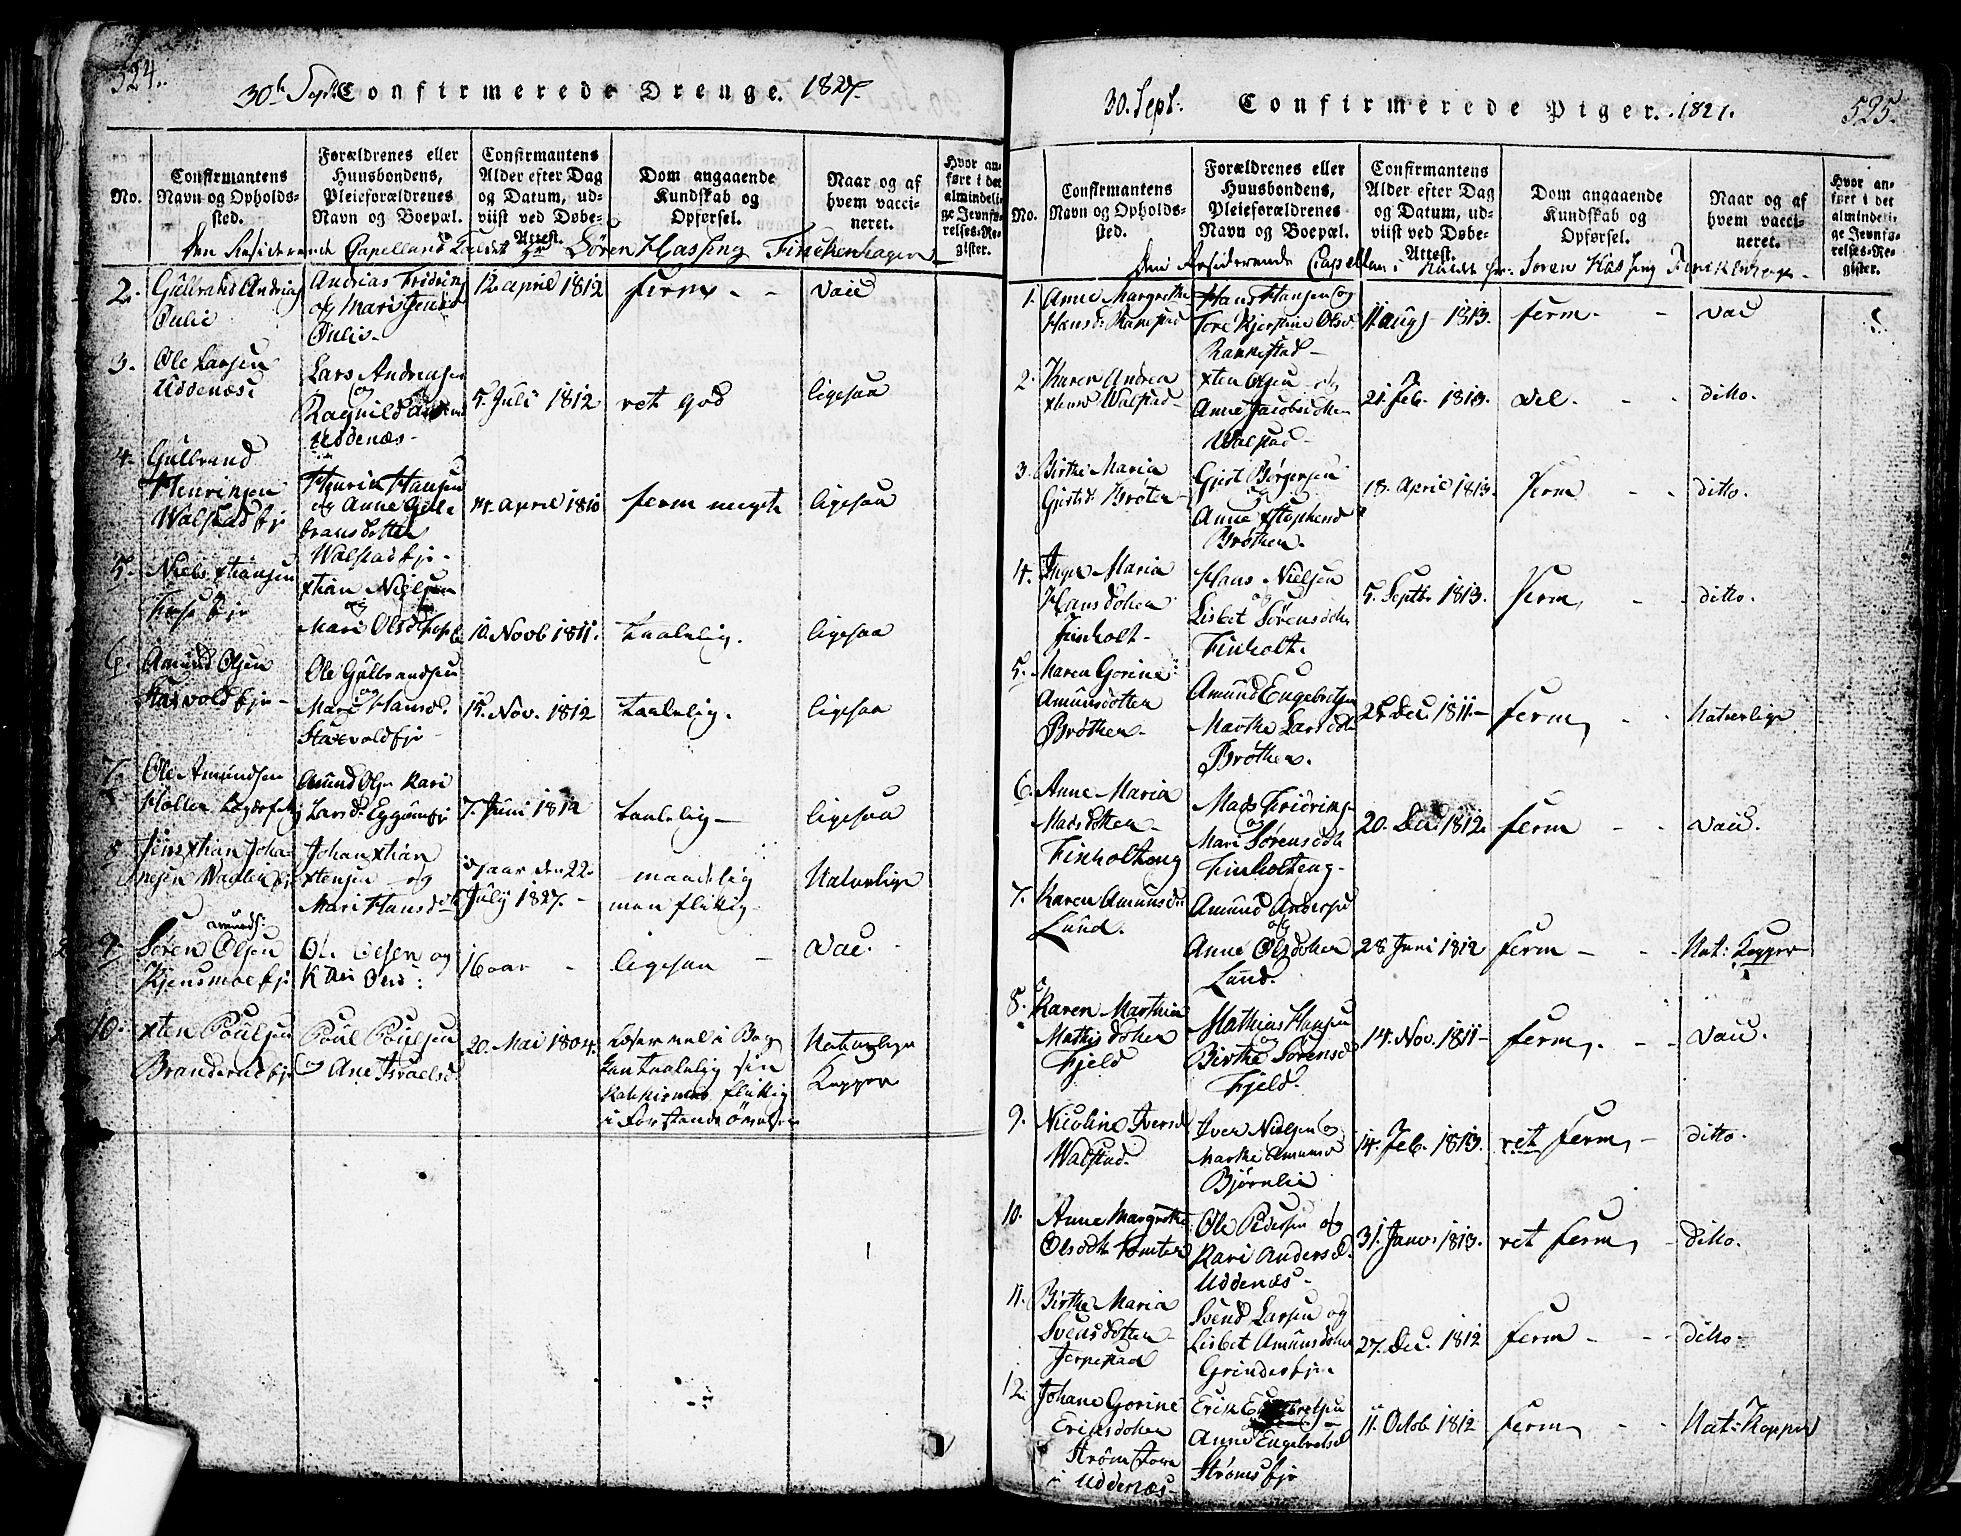 524.
30te Sept. Confirmerede Drenge. 1827.
No.
Confirmantens
Navn og Opholds-
sted.
Forældrenes eller
Huusbondens,
Pleieforældrenes
Navn og Boepæl.
Confirmantens
Alder efter Dag
og Datum, ud-
viist ved Døbe-
Attest.
Dom angaaende
Kundskab og
Opførsel.
Naar og af
hvem vacci-
neret.
Hvor an-
ført i det
almindeli-
ge Jevnfø-
relses-Re-
gister.
Den Residerende Capelland Søren Hassing Finckenhagen
2.
Gulbrand
Andrias Fridrics
og Mari
12 april 1812
ferm - -
vacc
3.
Ole Larsen
Uddenæs
Lars Andersen
og
Ragnild
Uddenæs -
5. Juli 1812
ret god
ligesaa
4. Gulbrand
Henriksen
Walstad eje
Henrik Hansen
og Anne Gul-
bransdotter
Walstad eje -
april 1810
ferm meget
ligesaa
5. Niels xtiansen
xtian Nielsen
og
Mari Olsd.
10. Novb 1811.
taalelig.
ligesaa
6. Amund Olsen
eje -
Ole Gulbrandsen
og
Mari Hansd.
eje -
15. Nov. 1812
taalelig.
ligesaa
7. Ole Amundsen
Holter
Amund Ols. Kari
Larsd. eje
7. Juni 1812
taalelig -
ligesaa
8 Jens xtian Joha-
nesen
Johan xtian
xtensen og
Mari Hansdotter
aar den 22
July 1827. -
maadelig
men flittig
Naturlige
amunds:
9. Søren Olsen
eje
Ole Olsen og
Kari Olsd:
16 aar -
ligesaa -
vac.
10. xten Poulsen
Branderud eje
Poul Poulsen
og Ane Israelsd.
20. Mai 1804.
Læser vel i Bog
kan taalelig sin
flittig
i
Naturlige
Kopper
30. Sept. Confirmerede Piger. 1827.
525.
No.
Confirmantens
Navn og Opholds-
sted.
Forældrenes eller
Huusbondens,
Pleieforældrenes
Navn og Boepæl.
Confirmantens
Alder efter Dag
og Datum, ud-
viist ved Døbe-
Attest.
Dom angaaende
Kundskab og
Opførsel.
Naar og af
hvem vacci-
neret.
Hvor an-
ført i det
almindeli-
ge Jevnfø-
relses-Re-
gister.
Den Residerende Capellan i Søren Hassing Finckenhagen -
1. Anne Margrethe
Hansd:
Hans Hansen og
Kjerstine Olsd.
Rakkestad -
11 aug 1813.
ferm - -
vac
2. Karen Andrea
xtensd Walstad -
xten Olsen og
Anne Jacobsdotter
Walstad -
21. Feb. 1813.
vel. - -
ditto.
3. Birthe Maria
Brøten -
Børgersen
og
Anne xstophersd
Brøthen.
18. April 1813.
Ferm - -
ditto.
4. Inger Maria
Hansdotter
Finholt -
Hans Nielsen
og
Lisbet Sørensdotter
Finholt.
5. Septbr 1813.
Ferm, -
ditto.
5. Maren Gorine
Amundsdotter
Brøthen -
Amund Engebretsen
Marthe Larsdotter
Brøthen.
25 Dec. 1811. -
ferm, - -
Naturlige
6. Anne Maria
Madsdotter -
Finholteng
Mads Fridrics
og
Mari Sørensdotter
Finholteng -
20. Dec. 1812.
ferm - -
vacc.
7. Karen Amunsd
Lund.
Amund Andersen
og
Anne Olsdotter
Lund.
28 Juni 1812
ferm - -
Nat: Kopper
8. Karen Marthia
Mathisdotter
Fjeld
Mathias Hansen
og
Birthe Sørensd
Fjeld.
14. Nov. 1811 -
ferm. - -
vacc.
9. Nicoline Iversd
Walstad.
Iver Nielsen og
Marthe Amunsd
Bjørnlie
14. Feb. 1813.
ret ferm, -
ditto.
10. Anne Margrethe
Olsdotter Tomter
Ole Pedersen og
Kari Andersd.
Uddenæs -
31. Janv 1813.
ret ferm, -
ditto.
11. Birthe Maria
Svensdotter -
Svend Larsen og
Lisbet Amunsdotter
Grinder eje
27. Dec. 1812
ferm - -
ditto -
12. Johane Gorine
Ericsdotter
Strøm
i Uddenæs -
Erik Engebretsen
Anne Engebretsd
Strøms eje
11. Octob 1812
ferm, - -
Nat: Kopper